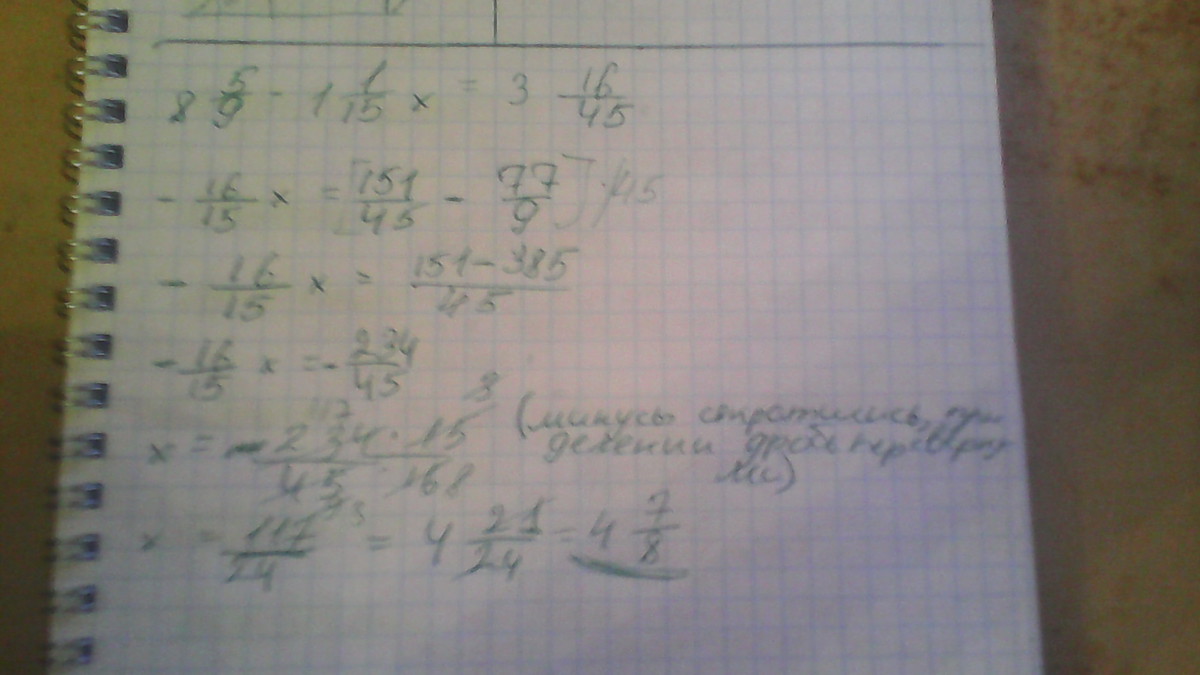 8 5/9 - 1 1/15 x = 3 16/45
- 16/15 x = [151/45 - 77/9] · 45
- 16/15 x = (151 - 385)/45
- 16/15 x = - 234/45
x = (234 · 15)/(45 · 16) (минусы сократились, при
делении дробь
x = 117/24 = 4 21/24 = 4 7/8